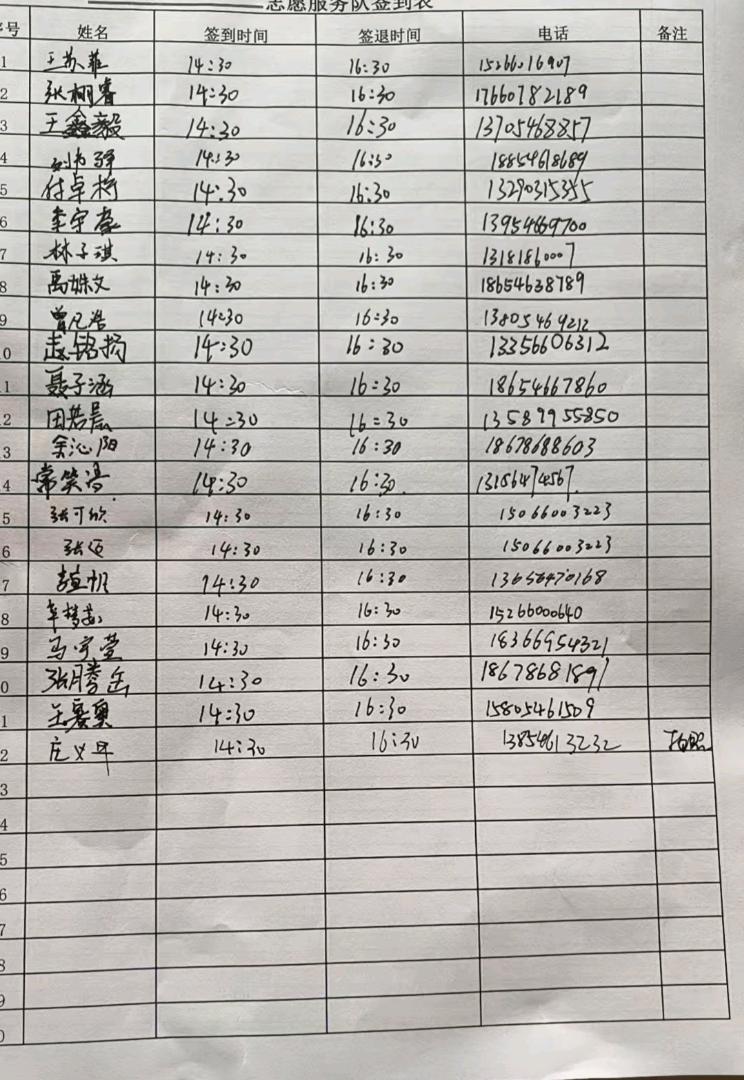 志愿服务队签到表
号 姓名 签到时间 签退时间 电话 备注
1 王苏菲 14:30 16:30 15266016907
2 张栩睿 14:30 16:30 17660782189
3 王鑫毅 14:30 16:30 13705468857
4 14:30 16:30 18854618689
5 付卓桁 14:30 16:30 13290315355
6 李宇 14:30 16:30 13954669700
7 林子琪 14:30 16:30 13181860007
8 禹姝文 14:30 16:30 18654638789
9 曾凡浩 14:30 16:30 13805469212
0 赵铭扬 14:30 16:30 13356606312
1 聂子涵 14:30 16:30 18654667860
2 田若晨 14:30 16:30 13589955850
3 余沁阳 14:30 16:30 18678688603
4 常笑 14:30 16:30 13156474567
5 张可欣 14:30 16:30 15066003223
6 张 14:30 16:30 15066003223
7 14:30 16:30
8 14:30 16:30 15266000640
9 马宇萱 14:30 16:30 18366954321
0 张腾岳 14:30 16:30 18678681891
1 王赛奥 14:30 16:30 15805461509
2 庄义 14:30 16:30 13854613232 拍照
3
4
5
6
7
8
9
0